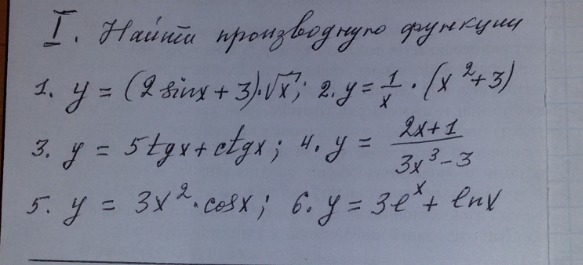 I. Найти производную функции
1. y = (2 sinx + 3)·√x; 2. y = 1/x · (x² + 3)
3. y = 5tgx + ctgx; 4. y = (2x + 1)/(3x³ - 3)
5. y = 3x² · cosx; 6. y = 3eˣ + lnx